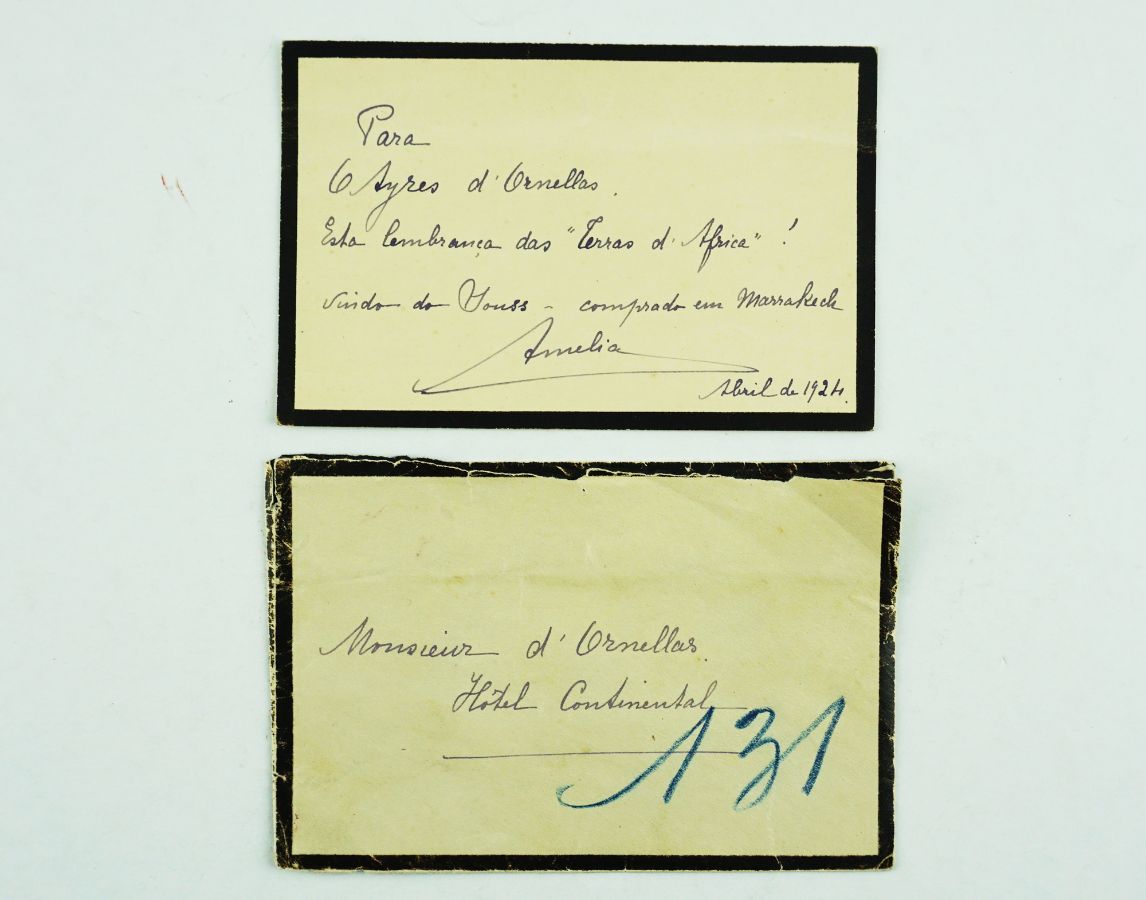 Para
O Ayres d'Ornellas.
Esta lembrança das "Terras d'Africa"!
vindo do Souss - comprado em Marrakech
Amelia
Abril de 1924.
Monsieur d'Ornellas
Hôtel Continental
131